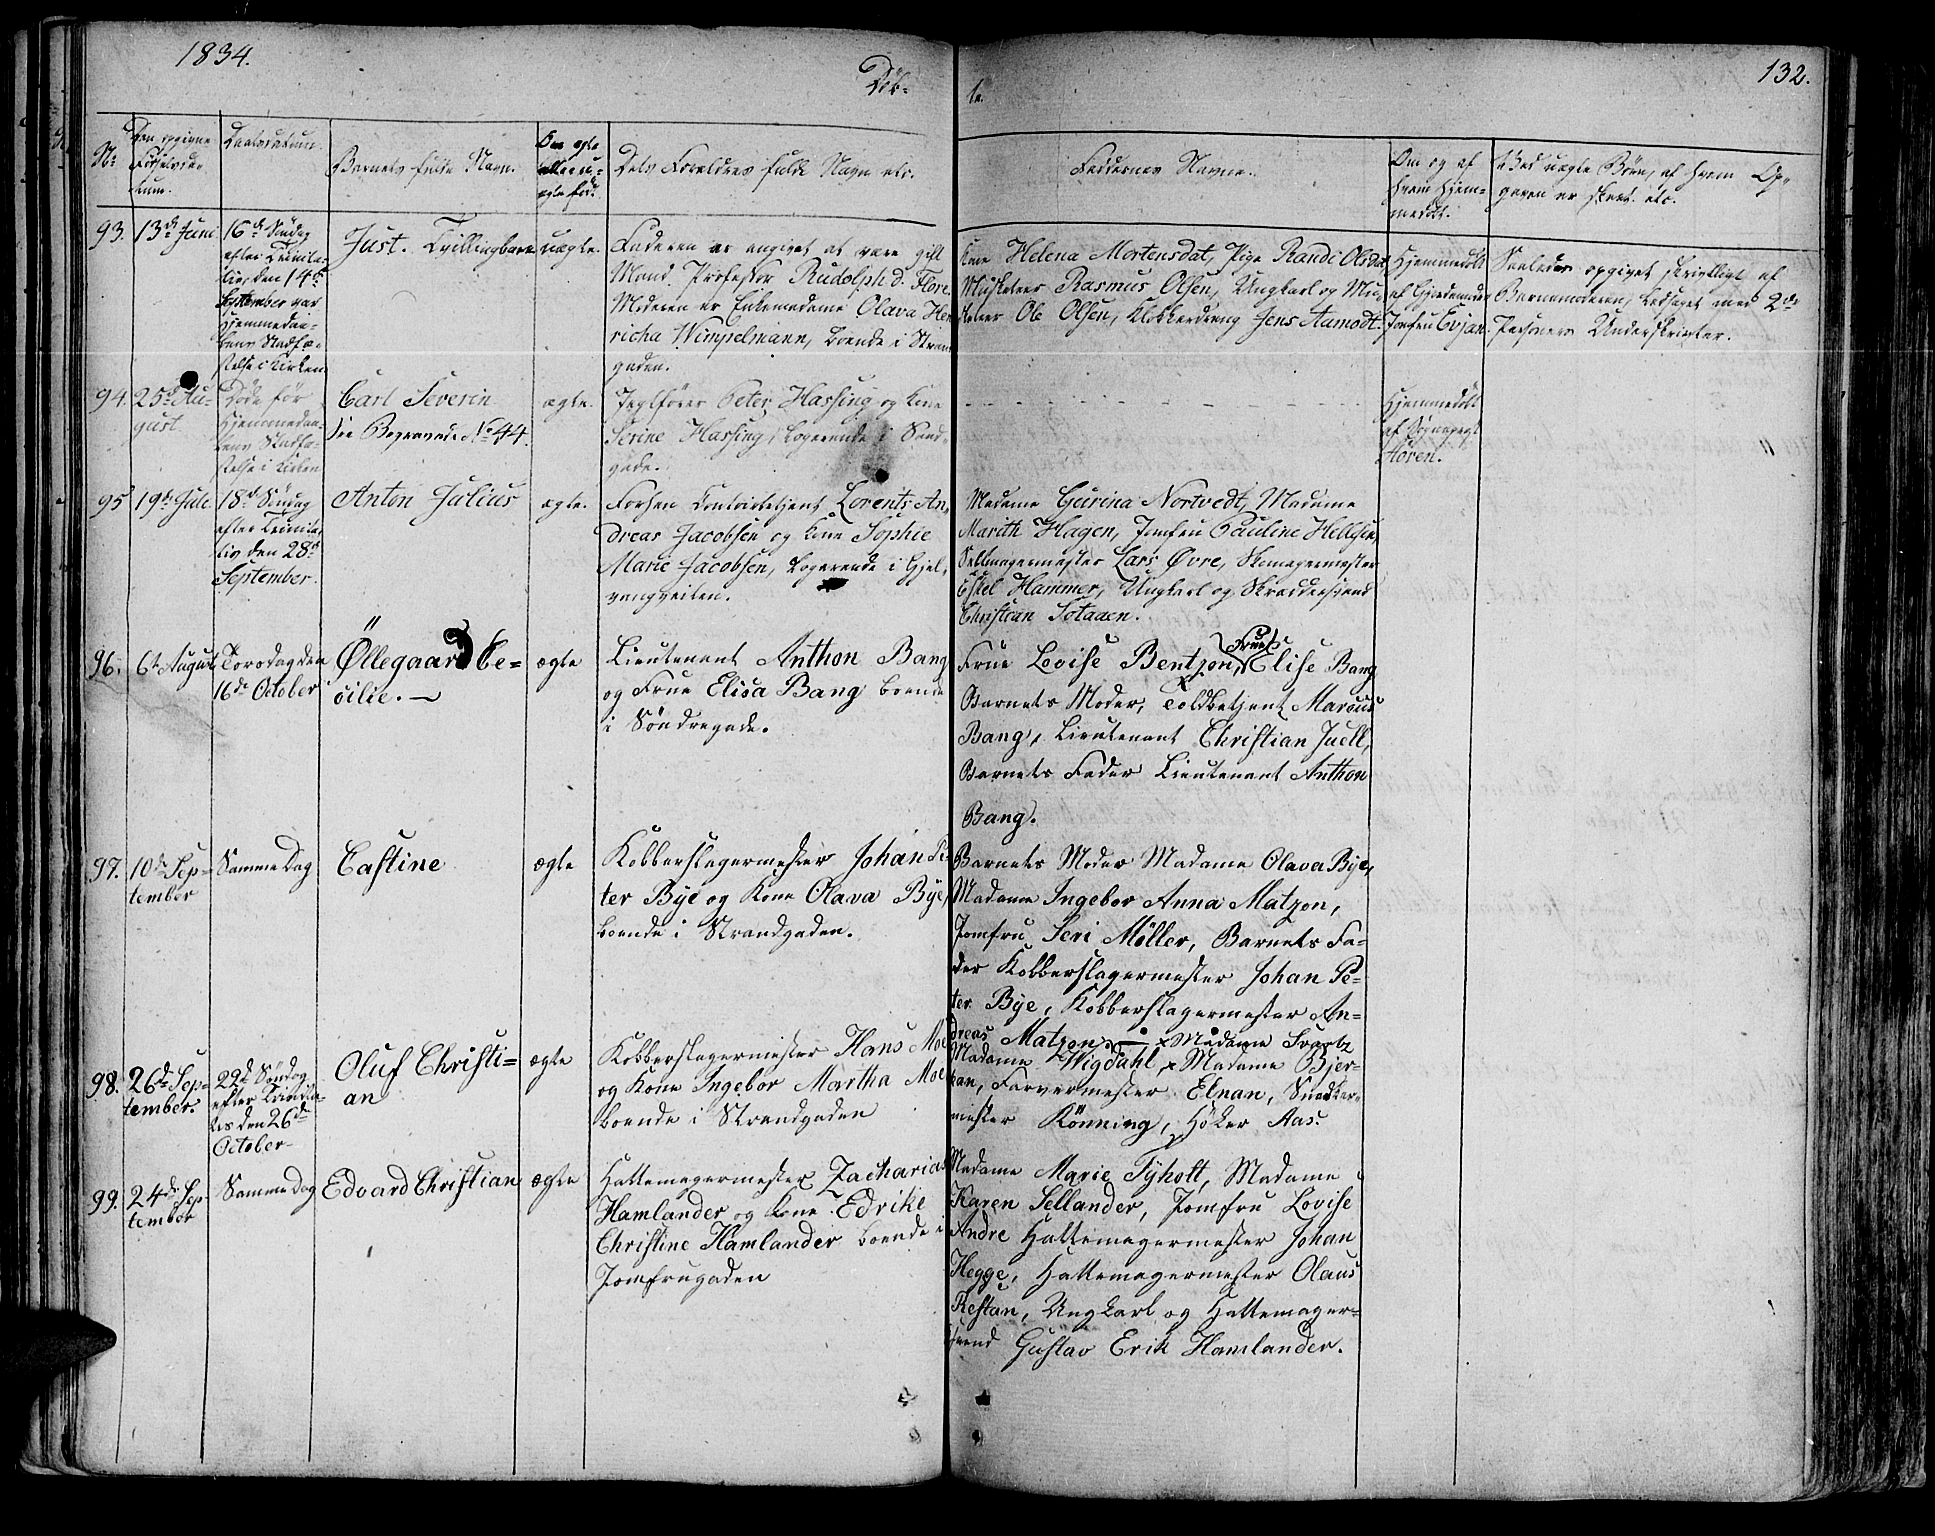 1834.
Døb-
te.
132.
No
Den opgivne Fødselsda-
tum.
Daabsdatum.
Barnets fulde Navn.
Om ægte
eller u-
ægte fød.
Dets Forældres fulde Navn etc.
Faddernes Navne.
Om og af
hvem hjem-
medøbt.
Ved uægte Børn, af hvem Op-
gaven er skeet. etc.
93.
13de Juni
16de Søndag
efter Trinita-
tis, den 14de
September var
Hjemmedaa-
bens Stadfæ-
stelse i Kirken
Just. Tvillingbarn
uægte.
Faderen er angivet at være gift
Mand Professor Rudolph d. Flore.
Moderen er Enkemadame Olava Hen
richa Wimpelmann, boende i Strand
gaden.
Kone Helena Mortensdat, Pige Randi Olsdat
Musketeer Rasmus Olsen, Ungkarl og Mu-
sketeer Ole Olsen, Klokkerdreng Jens Aamodt.
Hjemmedøbt
af Gjordemoder
Jomfru Evjan.
Saaledes opgivet skriftligt af
Barnemoderen, ledsaget med 2de
Personers Underskrifter.
94.
25de Au-
gust
Døde før
Hjemmedaa-
bens Stadfæ-
stelse i Kirken
Carl Severin
see Begravede No 44.
ægte.
Jegtfører Peter Hassing og Kone
Serine Hassing, Logerende i Sand-
gade.
Hjemmedøbt
af Sognepræst
Høven.
95
19de Juli
18de Søndag
efter Trinita-
tis den 28de
September.
Anton Julius
ægte.
Forhen Contoirbetjent Lorents An-
dreas Jacobsen og Kone Sophie
Marie Jacobsen, Logerende i Gjel-
vangveiten.
Madame Gurina Nortvedt, Madame
Marith Hagen, Jomfru Pauline Hellesen,
Sellmagermester Lars Øvre, Skomagermester
Eskel Hammer, Ungkarl og Skræddersvend
Christian Sotaaen.
96.
6te August
Torsdag den
16de October
Øllegaard Ce-
cilie. —
ægte
Lieutenant Anthon Bang
og Frue Elisa Bang boende
i Søndregade.
Frue Lovise Bentzon, Frue Elise Bang
Barnets Moder, Toldbetjent Marcus
Bang, Lieutenant Christian Juell,
Barnets Fader Lieutenant Anthon
Bang.
97.
10de Sep-
tember
Samme Dag
Castine
ægte
Kobberslagermester Johan Pe-
ter Bye og Kone Olava Bye,
boende i Strandgaden.
Barnets Moder Madame Olava Bye,
Madame Ingebor Anna Matzon,
Jomfru Seri Møller, Barnets Fa-
der Kobberslagermester Johan Pe-
ter Bye, Kobberslagermester An-
dreas Matzon. —
98.
26de Sep-
tember.
22de Søndag
efter Trinita-
tis den 26de
October
Oluf Christi-
an
ægte
Kobberslagermester Hans Moe
og Kone Ingebor Martha Moe
boende i Strandgaden
× Madame Svartz
Madame Wigdahl, × Madame Bjer-
kan, Farvermester Elnan, Snedker-
mester Könning, Höker Aas.
99.
24de Sep-
tember
Samme Dag
Edvard Christian
ægte
Hattemagermester Zacharias
Hamlander og Kone Edrike
Christine Hamlander boende i
Jomfrugaden
Madame Marie Tyholt, Madame
Karen Sellander, Jomfru Lovise
Andre Hattemagermester Johan
Hegge, Hattemagermester Olaus
Restan, Ungkarl og Hattemager-
svend Gustav Erik Hamlander.